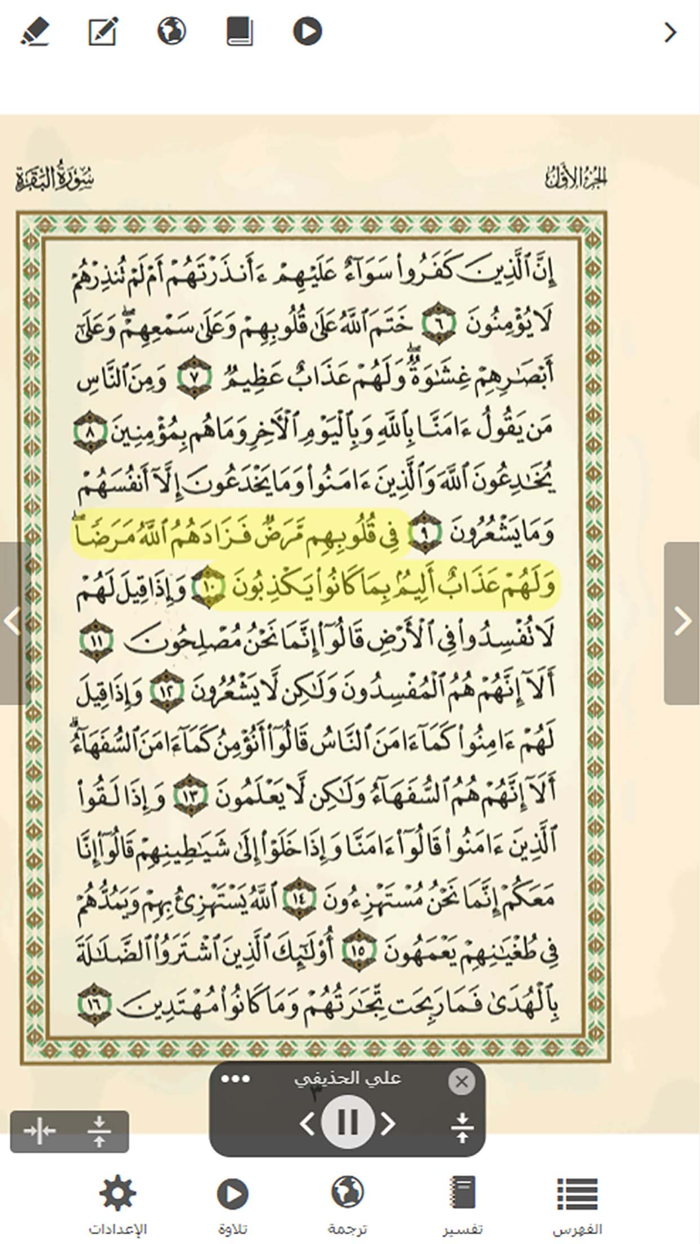 سُورَةُ البَقَرَةِ
الجُزْءُ الأَوَّلُ
إِنَّ ٱلَّذِينَ كَفَرُوا۟ سَوَآءٌ عَلَيْهِمْ ءَأَنذَرْتَهُمْ أَمْ لَمْ تُنذِرْهُمْ
لَا يُؤْمِنُونَ ٦ خَتَمَ ٱللَّهُ عَلَىٰ قُلُوبِهِمْ وَعَلَىٰ سَمْعِهِمْ ۖ وَعَلَىٰٓ
أَبْصَـٰرِهِمْ غِشَـٰوَةٌ ۖ وَلَهُمْ عَذَابٌ عَظِيمٌ ٧ وَمِنَ ٱلنَّاسِ
مَن يَقُولُ ءَامَنَّا بِٱللَّهِ وَبِٱلْيَوْمِ ٱلْـَٔاخِرِ وَمَا هُم بِمُؤْمِنِينَ ٨
يُخَـٰدِعُونَ ٱللَّهَ وَٱلَّذِينَ ءَامَنُوا۟ وَمَا يَخْدَعُونَ إِلَّآ أَنفُسَهُمْ
وَمَا يَشْعُرُونَ ٩ فِى قُلُوبِهِم مَّرَضٌ فَزَادَهُمُ ٱللَّهُ مَرَضًا ۖ
وَلَهُمْ عَذَابٌ أَلِيمٌۢ بِمَا كَانُوا۟ يَكْذِبُونَ ١٠ وَإِذَا قِيلَ لَهُمْ
لَا تُفْسِدُوا۟ فِى ٱلْأَرْضِ قَالُوٓا۟ إِنَّمَا نَحْنُ مُصْلِحُونَ ١١
أَلَآ إِنَّهُمْ هُمُ ٱلْمُفْسِدُونَ وَلَـٰكِن لَّا يَشْعُرُونَ ١٢ وَإِذَا قِيلَ
لَهُمْ ءَامِنُوا۟ كَمَآ ءَامَنَ ٱلنَّاسُ قَالُوٓا۟ أَنُؤْمِنُ كَمَآ ءَامَنَ ٱلسُّفَهَآءُ ۗ
أَلَآ إِنَّهُمْ هُمُ ٱلسُّفَهَآءُ وَلَـٰكِن لَّا يَعْلَمُونَ ١٣ وَإِذَا لَقُوا۟
ٱلَّذِينَ ءَامَنُوا۟ قَالُوٓا۟ ءَامَنَّا وَإِذَا خَلَوْا۟ إِلَىٰ شَيَـٰطِينِهِمْ قَالُوٓا۟ إِنَّا
مَعَكُمْ إِنَّمَا نَحْنُ مُسْتَهْزِءُونَ ١٤ ٱللَّهُ يَسْتَهْزِئُ بِهِمْ وَيَمُدُّهُمْ
فِى طُغْيَـٰنِهِمْ يَعْمَهُونَ ١٥ أُو۟لَـٰٓئِكَ ٱلَّذِينَ ٱشْتَرَوُا۟ ٱلضَّلَـٰلَةَ
بِٱلْهُدَىٰ فَمَا رَبِحَت تِّجَـٰرَتُهُمْ وَمَا كَانُوا۟ مُهْتَدِينَ ١٦
علي الحذيفي
٣
الفهرس
تفسير
ترجمة
تلاوة
الإعدادات